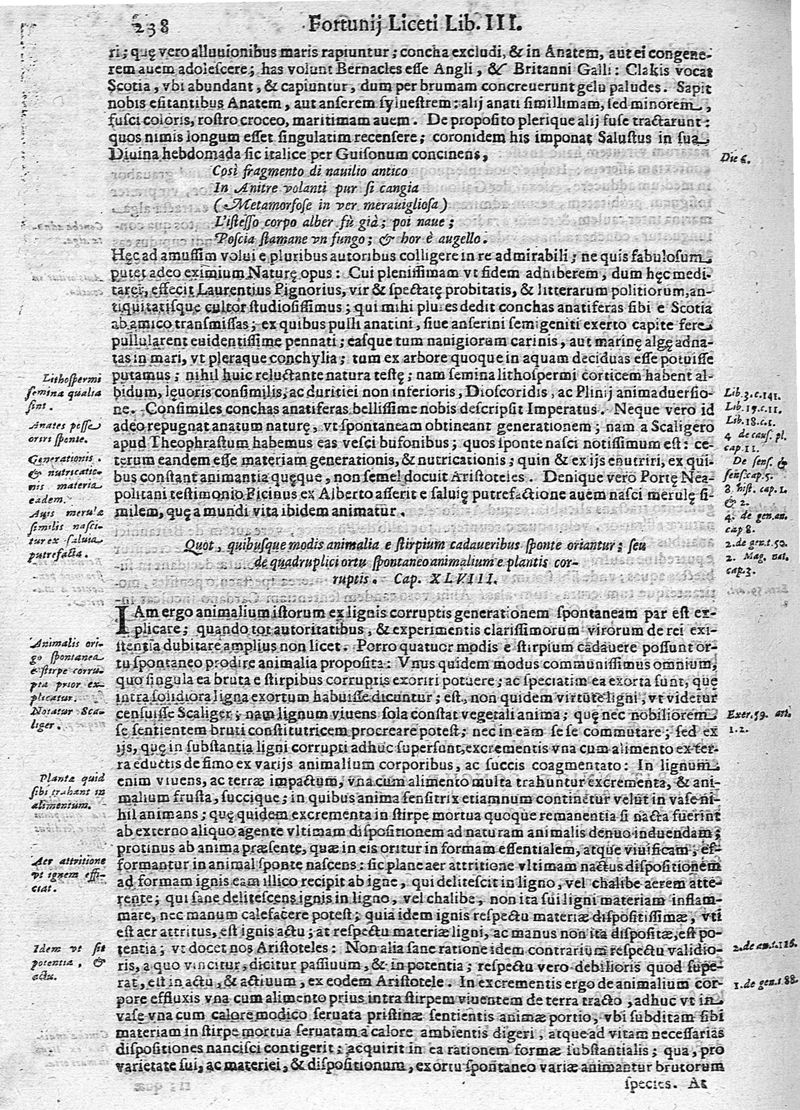 238 Fortunij Liceti Lib. III.
ri; quę vero alluuionibus maris rapiuntur; concha excludi, & in Anatem, aut ei congene-
rem auem adolescere; has volunt Bernacles esse Angli, & Britanni Galli: Clakis vocat
Scotia, vbi abundant, & capiuntur, dum per brumam concreuerunt gelu paludes. Sapit
nobis esitantibus Anatem, aut anserem syluestrem: alij anati simillimam, sed minorem,
fusci coloris, rostro croceo, maritimam auem. De proposito plerique alij fuse tractarunt:
quos nimis longum esset singulatim recensere; coronidem his imponat Salustus in sua
Diuina hebdomada sic italice per Guisonum concinens,
Die 6.
Così fragmento di nauilio antico
In Anitre volanti pur si cangia
(Metamorfose in ver merauigliosa)
L'istesso corpo alber fù già; poi naue;
Poscia stamane vn fungo; & hor è augello.
Hęc ad amussim volui e pluribus autoribus colligere in re admirabili; ne quis fabulosum
putet adeo eximium Naturę opus: Cui plenissimam vt fidem adhiberem, dum hęc medi-
tarer, effecit Laurentius Pignorius, vir & spectatę probitatis, & litterarum politiorum, an-
tiquitatisque cultor studiosissimus; qui mihi plures dedit conchas anatiferas sibi e Scotia
ab amico transmissas; ex quibus pulli anatini, siue anserini semigeniti exerto capite fere
pullularent euidentissime pennati; easque tum nauigiorum carinis, aut marinę algę adna-
tas in mari, vt pleraque conchylia; tum ex arbore quoque in aquam deciduas esse potuisse
putamus; nihil huic reluctante natura testę; nam semina lithospermi corticem habent al-
bidum, lęuoris consimilis, ac duritiei non inferioris, Dioscoridis, ac Plinij animaduersio-
ne. Consimiles conchas anatiferas bellissime nobis descripsit Imperatus. Neque vero id
adeo repugnat anatum naturę, vt spontaneam obtineant generationem; nam a Scaligero
apud Theophrastum habemus eas vesci bufonibus; quos sponte nasci notissimum est: ce-
terum eandem esse materiam generationis, & nutricationis; quin & ex ijs enutriri, ex qui-
bus constant animantia quęque, non semel docuit Aristoteles. Denique vero Portę Nea-
politani testimonio Ficinus ex Alberto asserit e saluię putrefactione auem nasci merulę si-
milem, quę a mundi vita ibidem animatur.
Lithospermi
semina qualia
sint.
Anates posse
oriri sponte.
Generationis,
& nutricatio-
nis materia
eadem.
Auis merulæ
similis nasci-
tur ex saluia
putrefacta.
Lib. 3. c. 141.
Lib. 27. c. 11.
Lib. 18. c. 1.
4 de caus. pl.
cap. 11.
De sens. &
sens. cap. 5.
8. hist. cap. 1.
& 2.
4. de gen. an.
cap 8.
2. de gen. t. 50.
2. Mag. nat.
cap. 3.
Quot, quibusque modis animalia e stirpium cadaueribus sponte oriantur; seu
de quadruplici ortu spontaneo animalium e plantis cor-
ruptis. Cap. XLVIII.
IAm ergo animalium istorum ex lignis corruptis generationem spontaneam par est ex-
plicare; quando tot autoritatibus, & experimentis clarissimorum virorum de rei exi-
stentia dubitare amplius non licet. Porro quatuor modis e stirpium cadauere possunt or-
tu spontaneo prodire animalia proposita: Vnus quidem modus communissimus omnium,
quo singula ea bruta e stirpibus corruptis exoriri potuere; ac speciatim ea exorta sunt, quę
intra solidiora ligna exortum habuisse dicuntur; est, non quidem virtute ligni, vt videtur
censuisse Scaliger; nam lignum viuens sola constat vegetali anima; quę nec nobiliorem
se sentientem bruti constitutricem procreare potest; nec in eam sese commutare; sed ex
ijs, quę in substantia ligni corrupti adhuc supersunt, excrementis vna cum alimento ex ter-
ra eductis de fimo ex varijs animalium corporibus, ac succis coagmentato: In lignum
enim viuens, ac terræ impactum, vna cum alimento multa trahuntur excrementa, & ani-
malium frusta, succique; in quibus anima sensitrix etiamnum continetur velut in vase ni-
hil animans; quę quidem excrementa in stirpe mortua quoque remanentia si nacta fuerint
ab externo aliquo agente vltimam dispositionem ad naturam animalis denuo induendam;
protinus ab anima præsente, quæ in eis oritur in formam essentialem, atque viuificam, ef-
formantur in animal sponte nascens: sic plane aer attritione vltimam nactus dispositionem
ad formam ignis eam illico recipit ab igne, qui delitescit in ligno, vel chalibe aerem atte-
rente; qui sane delitescens ignis in ligno, vel chalibe, non ita sui ligni materiam inflam-
mare, nec manum calefacere potest; quia idem ignis respectu materiæ dispositissimæ, vti
est aer attritus, est ignis actu; at respectu materiæ ligni, ac manus non ita dispositæ, est po-
tentia; vt docet nos Aristoteles: Non alia sane ratione idem contrarium respectu validio-
ris, a quo vincitur, dicitur passiuum, & in potentia; respectu vero debilioris quod supe-
rat, est in actu, & actiuum, ex eodem Aristotele. In excrementis ergo de animalium cor-
pore effluxis vna cum alimento prius intra stirpem viuentem de terra tracto, adhuc vt in
vase vna cum calore modico seruata pristinæ sentientis animæ portio, vbi subditam sibi
materiam in stirpe mortua seruatam a calore ambientis digeri, atque ad vitam necessarias
dispositiones nancisci contigerit; acquirit in ea rationem formæ substantialis; qua, pro
varietate sui, ac materiei, & dispositionum, exortu spontaneo variæ animantur brutorum
species. At
Animalis ori-
go spontanea
e stirpe corru-
pta prior ex-
plicatur.
Notatur Sca-
liger.
Plantæ quid
sibi trahant in
alimentum.
Aer attritione
vt ignem effi-
ciat.
Idem vt sit
potentia, &
actu.
Exer. 59. art.
1. 2.
2. de an. t. 126.
1. de gen. t. 88.